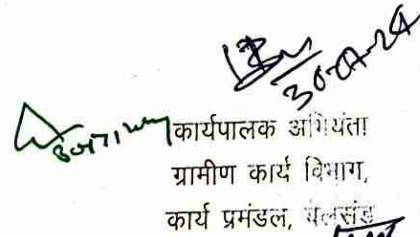 30-07-24
कार्यपालक अभियंता
ग्रामीण कार्य विभाग,
कार्य प्रमंडल, बेलसंड